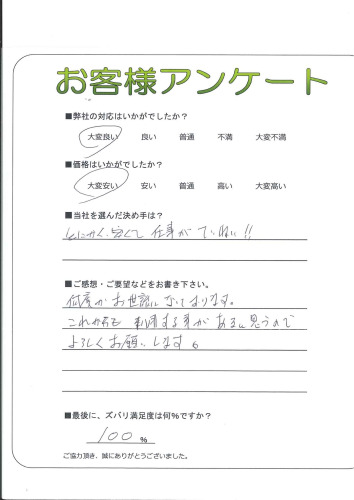 お客様アンケート
■弊社の対応はいかがでしたか？
大変良い 良い 普通 不満 大変不満
■価格はいかがでしたか？
大変安い 安い 普通 高い 大変高い
■当社を選んだ決め手は？
とにかく、安くて 仕事が ていねい!!
■ご感想・ご要望などをお書き下さい。
何度か お世話になっております。
これからも 利用する事が あると思うので
よろしくお願いします。
■最後に、ズバリ満足度は何%ですか？
100 %
ご協力頂き、誠にありがとうございました。